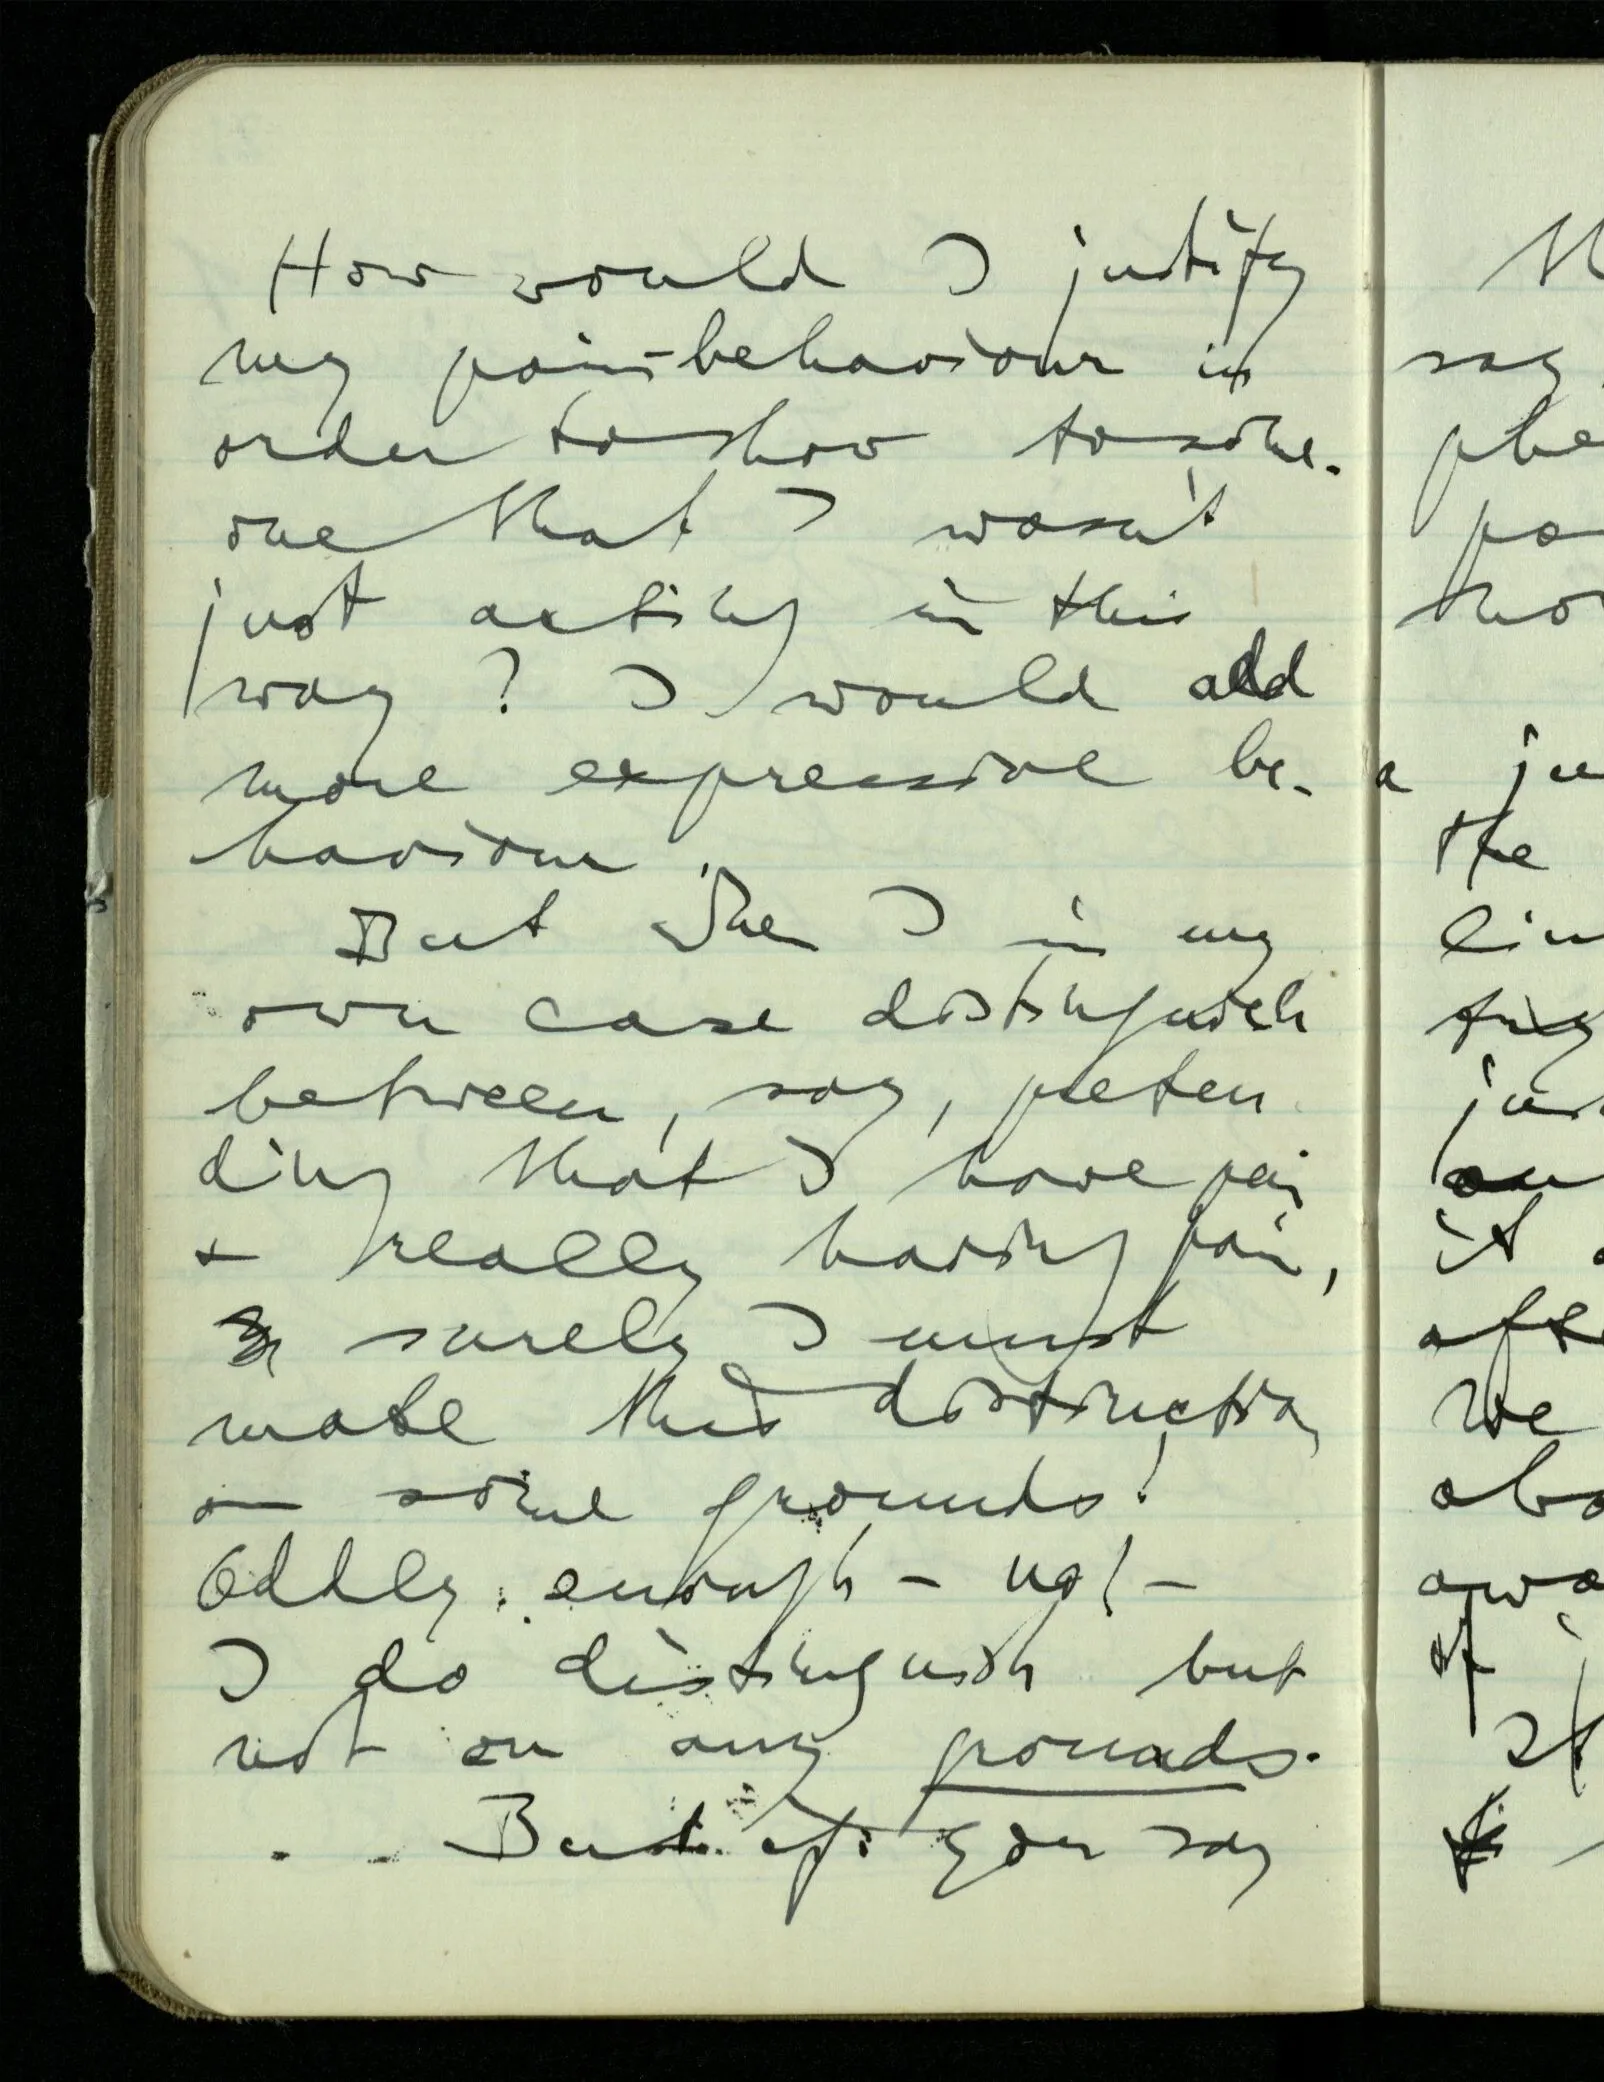 How would I justify
my pain-behaviour in
order to show to some-
one that I wasn't
just acting in this
way? I would add
more expressive be-
haviour.
But when I in my
own case distinguish
between, say, preten
ding that I have pain
+ really having pain,
surely I must
make this distinction
on some grounds!
Oddly enough – no! –
I do distinguish but
not on any grounds.
. . But if you say
say
a
the
it
We
of